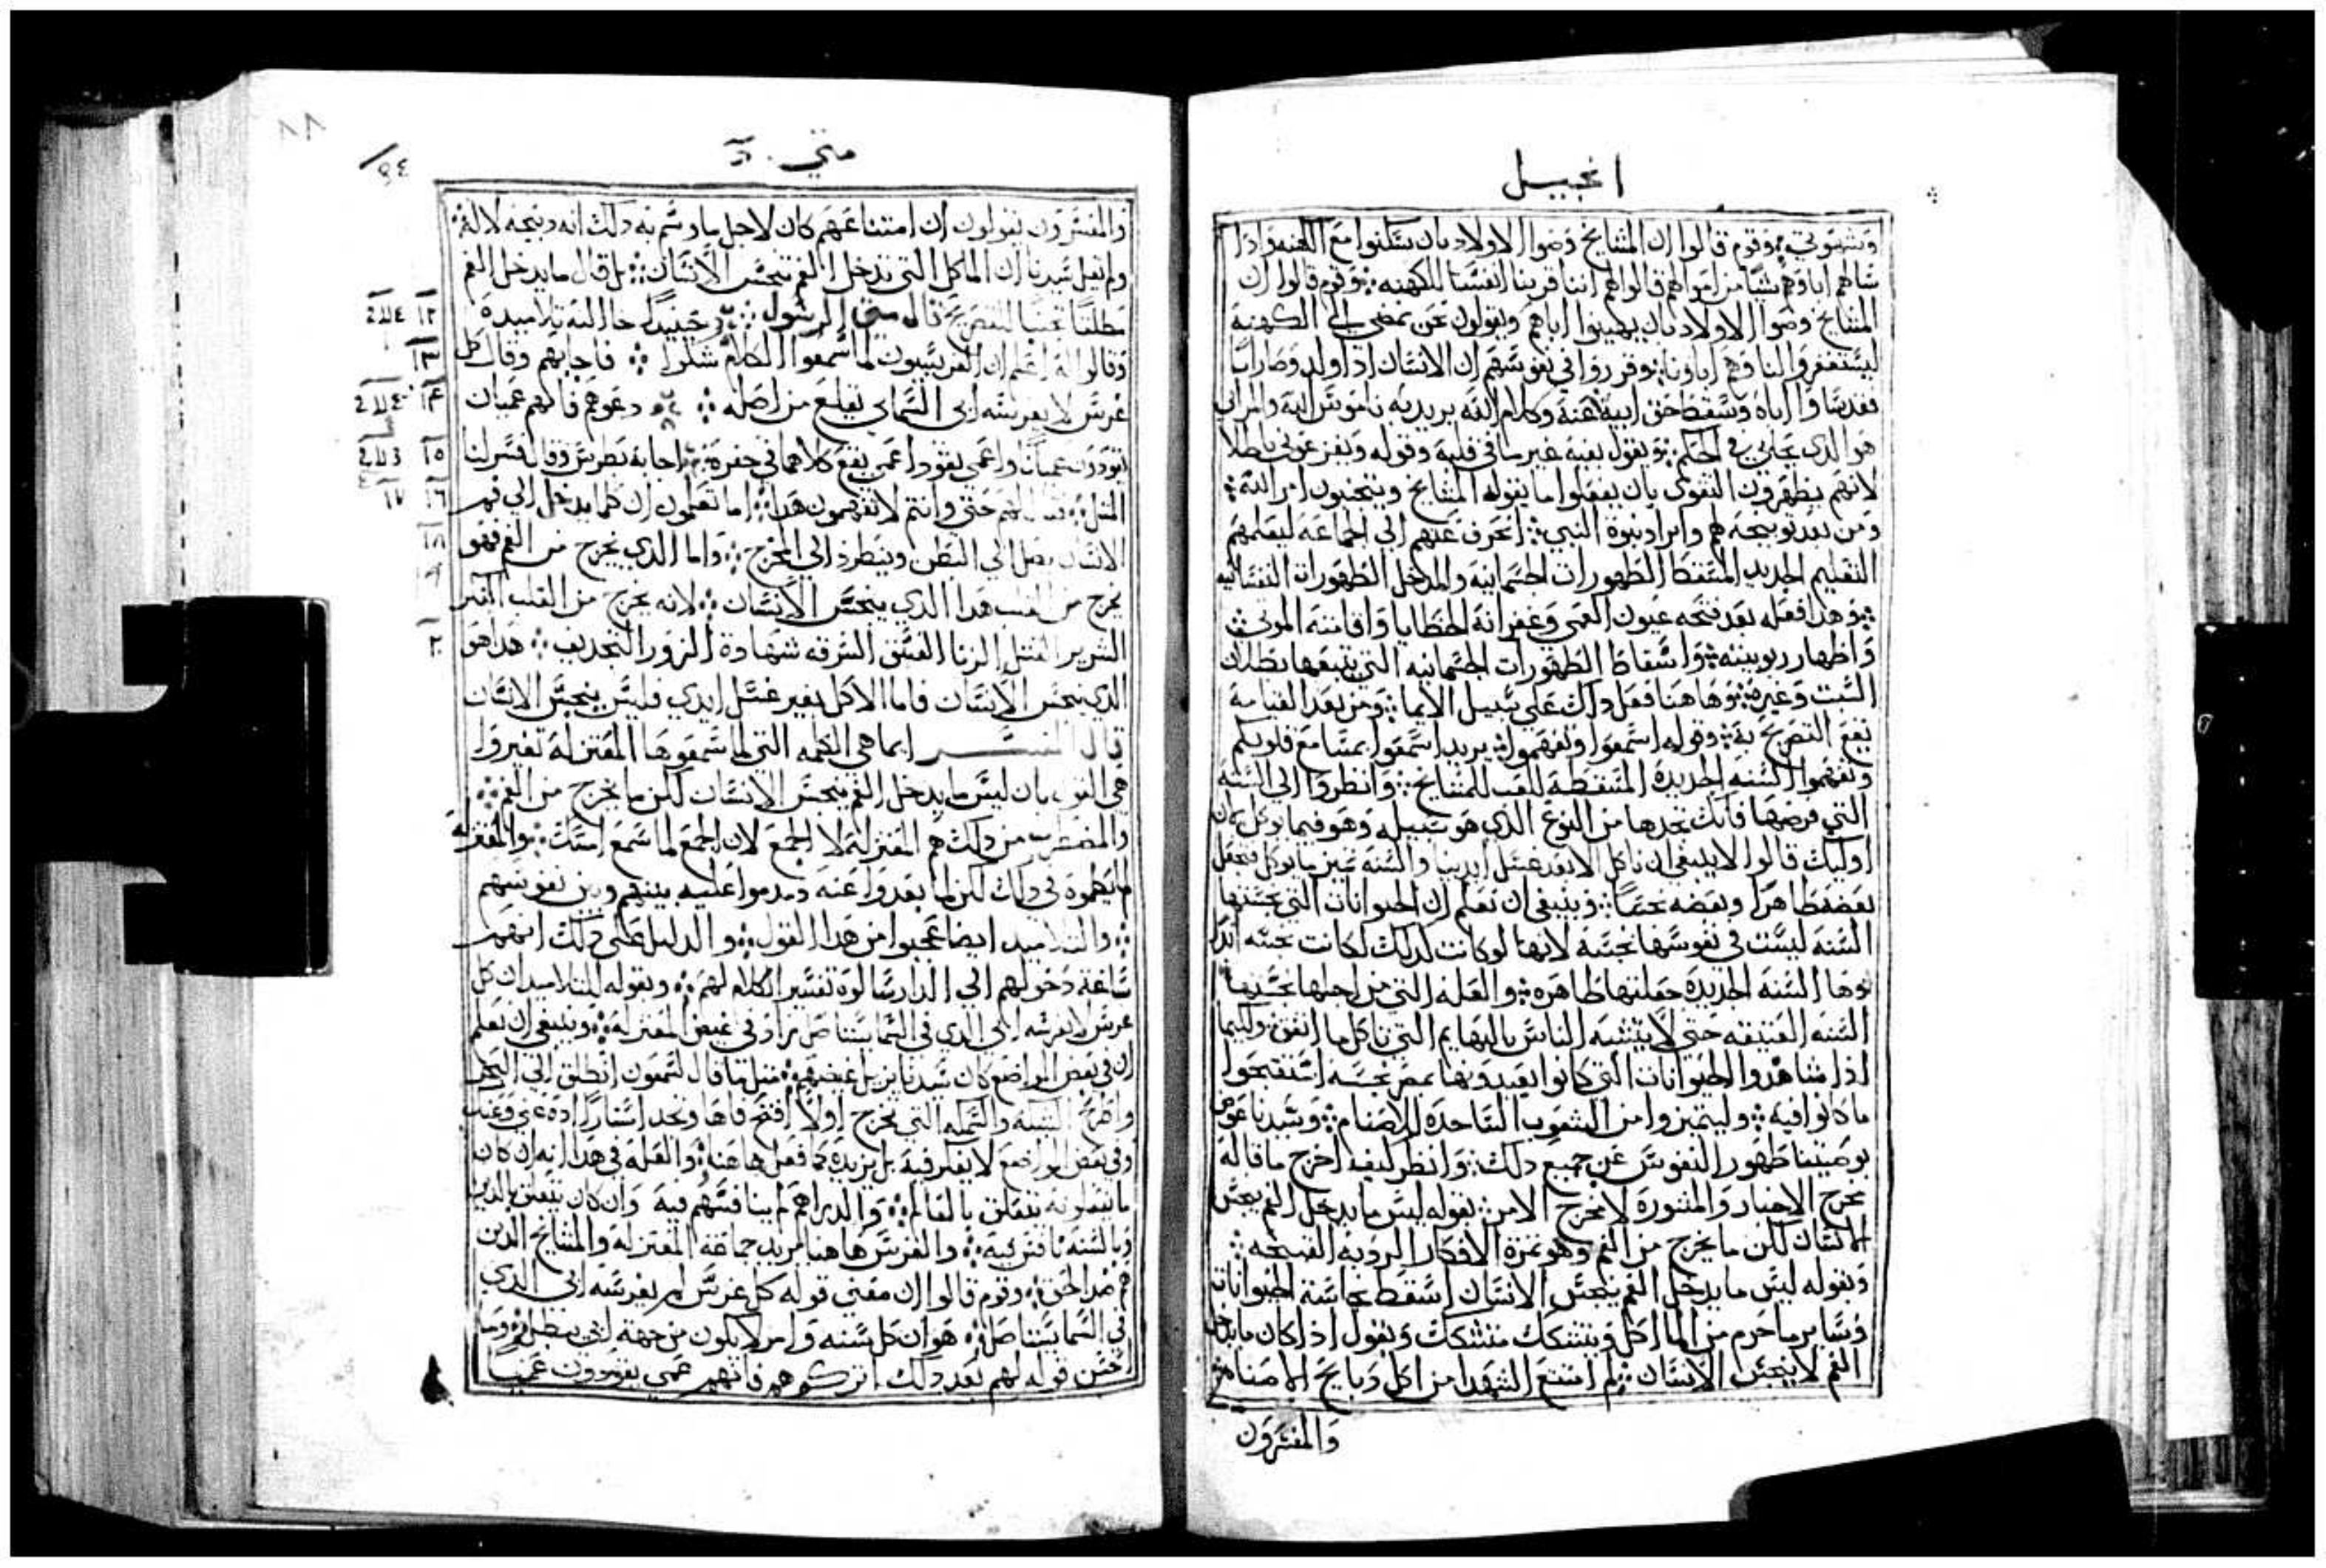 انجيل
وشهوتي وقوم قالوا ان المشايخ وصوا الاولاد بان يسكنوا مع الكهنه واذا
شاهم اباوهم شيا من امواهم قالوا لهم اننا قربنا انفسنا للكهنه وقوم قالوا ان
المشايخ وصوا الاولاد بان يهينوا اباهم ويقولون نحن نمضي الي الكهنة
ليستغفروا لنا وهم اباونا وقرروا في نفوسهم ان الانسان اذا ولد وصار ابا
فقد نسا اباه وسقط حق ابيه عنه وكلام الله يريد به ناموس الله والمراي
هو الذي في الحكم ويقول بفيه غير ما في قلبه وقوله وبفزعوني باطلا
لانهم يظهرون التقوي بان يفعلوا ما يقوله المشايخ ويتجنبون امر الله
ومن بعد توبيخه لهم وايراد نبوة النبي انحرف عنهم الي الجماعه ليعلمهم
التعليم الجديد المسقط الطهورات الجسمانيه والمدخل الطهورات النفسانيه
وهذا فعله بعد فتحه عيون العمي وغفرانه الخطايا واقامته الموتي
واظهار ربوبيته واسقاط الطهورات الجسمانيه التي يتبعها بطلان
السبت وغيره وها هنا فعل ذلك علي سبيل الايما ومن بعد القيامه
يقع التصريح به وقوله اسمعوا وتفهموا يريد اسمعوا بمسامع قلوبكم
وتفهموا السنه الجديدة المسقطه لتعب المشايخ وانظروا الي السنه
التي فرضها فانك تجدها من النوع الذي هو سبيله وهو فيما يوكل فان
اوليك قالوا لا ينبغي ان ناكل الا بعد غسل ايدينا والسنه تميز ما يوكل فتجعل
بعضه طاهرا وبعضه نجسا وينبغي ان تعلم ان الحيوانات التي نجستها
السنه ليست في نفوسها نجسة لانها لو كانت كذلك لكانت نجسه ابدا
وها السنه الجديدة جعلتها طاهره والعله التي من اجلها نجستها
السنه العتيقه حتي لا يتشبه الناس بالبهايم التي تاكل ما اتفق وليما
اذا شاهدوا الحيوانات التي كانوا يعبدونها بمصر نجسه استقبحوا
ما كانوا فيه وليتميزوا من الشعوب الساجده للاصنام وسيدنا عوض
بوصيتنا طهور النفوس عن جميع ذلك وانظر كيف اخرج ما قاله
مخرج الاخبار والمشورة لا مخرج الامر بقوله ليس ما يدخل الفم ينجس
الانسان لكن ما يخرج من الفم وهو ثمرة الافكار الرديه القبيحه
وبقوله ليس ما يدخل الفم ينجس الانسان اسقط نجاسة الحيوانات
وساير ما حرم من الماكل ويتشكك متشكك ويقول اذا كان ما يدخل
الفم لا ينجس الانسان لم امتنع الشهدا من اكل ذبايح الاصنام
والمفسرون
متي
والمفسرون يقولون ان امتناعهم كان لاجل ما وسم به ذلك انه ذبيحه لالة
ولم يقل سيدنا ان الماكل التي تدخل الفم تنجس الانسان بل قال ما يدخل الفم
مطلقا تجنبا للتصريح قال متي الرسول حينيذ جا اليه تلاميذه
وقالوا له اعلم ان الفريسيون لما سمعوا الكلام شكوا فاجابهم وقال كل
غرس لا يغرسه ابي السماي يقلع من اصله دعوهم فانهم عميان
يقودون عميان واعمي يقود اعمي يقع كلاهما في حفرة اجابه بطرس وقال فسر لنا
المثل فقال لهم حتي وانتم لا تفهمون هذا اما تعلمون ان كلما يدخل الي فم
الانسان يصل الي البطن وينطرد الي المخرج واما الذي يخرج من الفم فهو
يخرج من القلب هذا الذي ينجس الانسان لانه يخرج من القلب الفكر
الشرير القتل الزنا الفسق السرقه شهادة الزور التجديف هذا هو
الذي ينجس الانسان فاما الاكل بغير غسل ايدي فليس ينجس الانسان
قال المفسر ايما هي الكلمه التي لما سمعوها المعتزله تغيروا
هي القول بان ليس ما يدخل الفم ينجس الانسان لكن ما يخرج من الفم
والمضطرب من ذلك هم المعتزله لا الجمع لان الجمع لما سمع امسك والمعتزلة
في ذلك لكن لما بعدوا عنه بينهم وبين نفوسهم
والتلاميد ايضا عجبوا من هذا القول والدليل علي ذلك انهم
ساعة دخولهم الي الدار سالوه تفسير الكلام لهم وبقوله للتلاميذ ان كل
غرس لا يغرسه ابي الذي في السما يستاصل زاد في غيض المعتزله وينبغي ان تعلم
ان في بعض المواضع كان سيدنا يزيل غيضهم مثل ما قال لشمعون انطلق الي البحر
واطرح الشبكه والسمكه التي تخرج اولا افتح فاها وتجد استارا اده عني وعنك
وفي بعض المواضع لا يفكر فيه بل يزيده كما فعل هاهنا والعله في هذا انه ان كان
ما يقولونه يتعلق بالعالم والدراهم لم يناقسهم فيه وان كان يتعلق بالدين
وبالسنه ناقش فيه والغرس هاهنا يريد جماعة المعتزله والمشايخ الذين
هم ضد الحق وقوم قالوا ان معني قوله كل غرس لم يغرسه ابي الذي
في السما يستاصل هو ان كل سنه وامر لا يكون من جهة ابي يبطل وما
احسن قوله لهم بعد ذلك اتركوهم فانهم عمي يقودون عميا